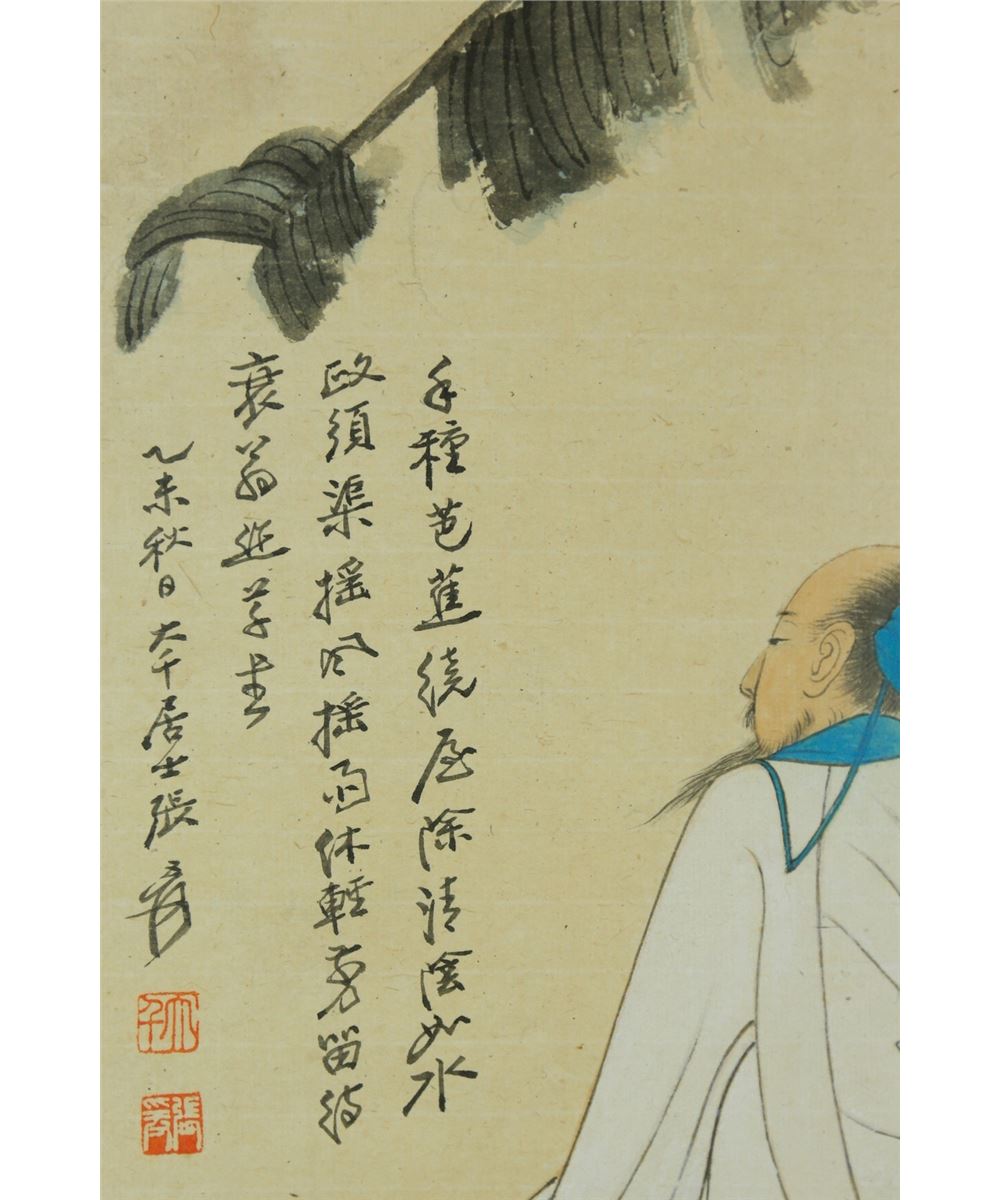 手種芭蕉繞屋除清陰如水
政須渠搖風搖雨休輕剪留待
衰翁起草書
乙未秋日大千居士張爰
大千
張爰